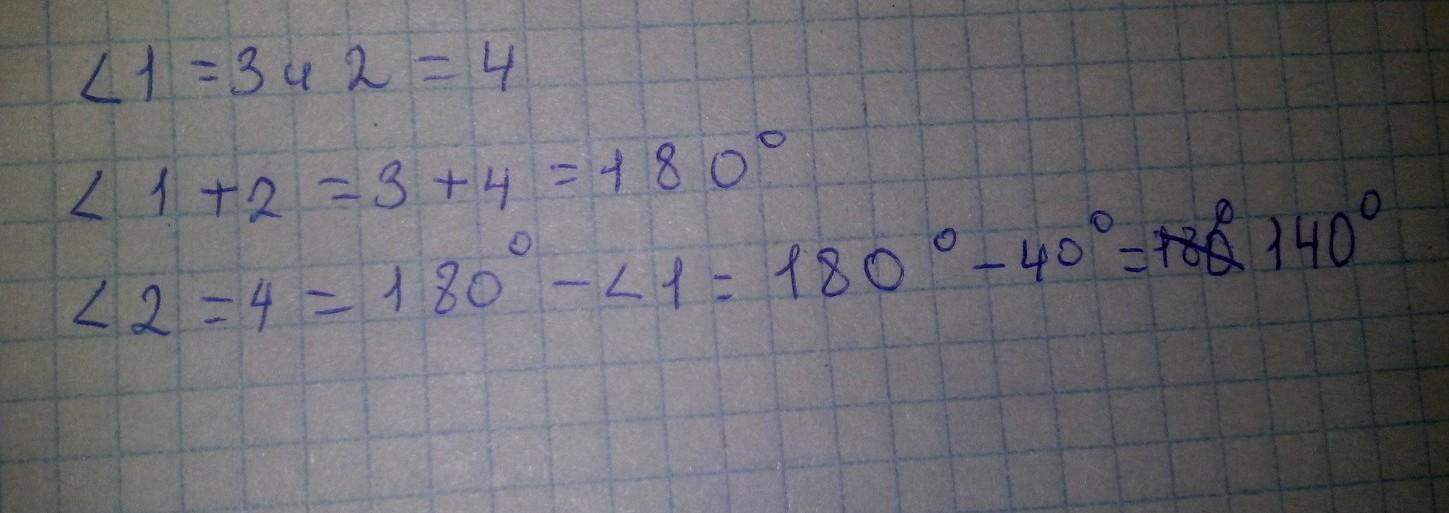 ∠1 = 3 и 2 = 4
∠1 + 2 = 3 + 4 = 180°
∠2 = 4 = 180° - ∠1 = 180° - 40° = 140°